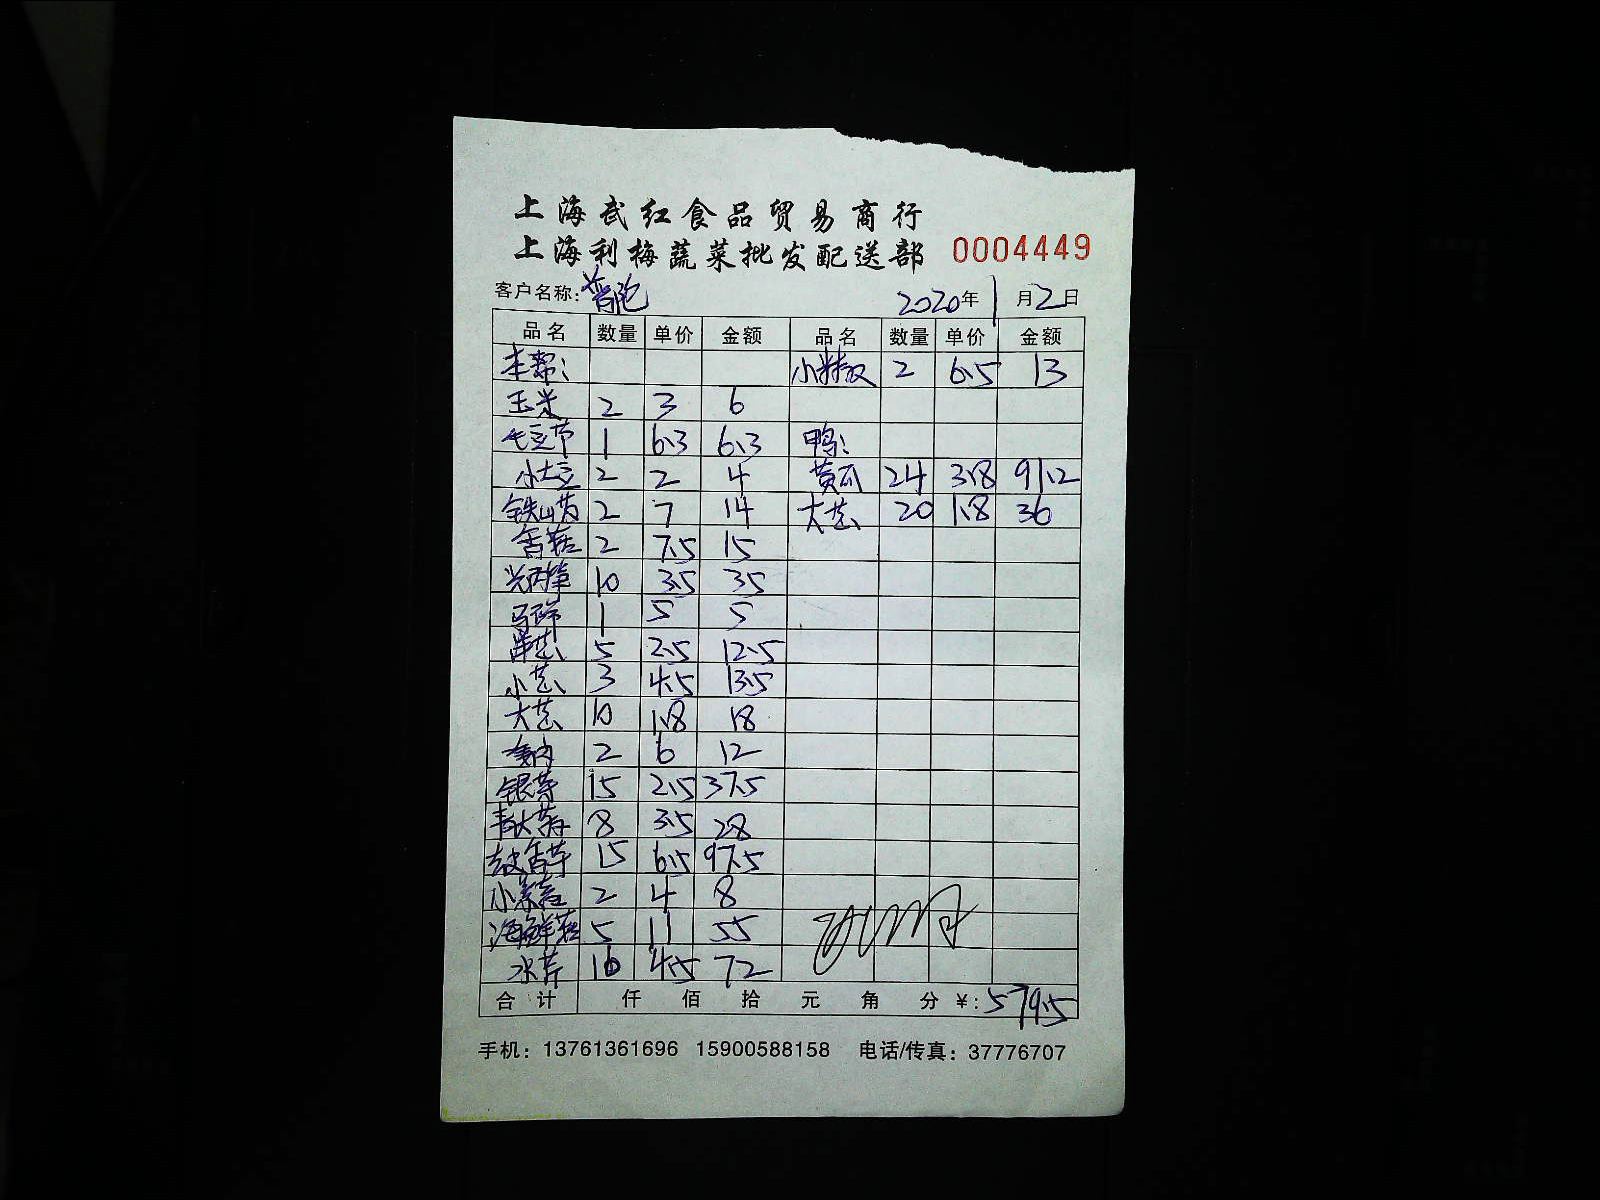 上海武红食品贸易商行
上海利梅蔬菜批发配送部 0004449
客户名称: 普陀 2020年1月2日
品名 数量 单价 金额 品名 数量 单价 金额
本帮: 小米椒 2 6.5 13
玉米 2 3 6
毛豆节 1 6.3 6.3 鸭:
小土豆 2 2 4 黄瓜 24 3.8 91.2
铁山药 2 7 14 大葱 20 1.8 36
香菇 2 7.5 15
10 3.5 35
马蹄 1 5 5
洋葱 5 2.5 12.5
小葱 3 4.5 13.5
大葱 10 1.8 18
2 6 12
银芽 15 2.5 37.5
青大蒜 8 3.5 28
去皮香芋 15 6.5 97.5
小米菇 2 4 8
海鲜菇 5 11 55
水芹 16 4.5 72
合计 仟 佰 拾 元 角 分 ¥: 579.5
手机: 13761361696 15900588158 电话/传真: 37776707